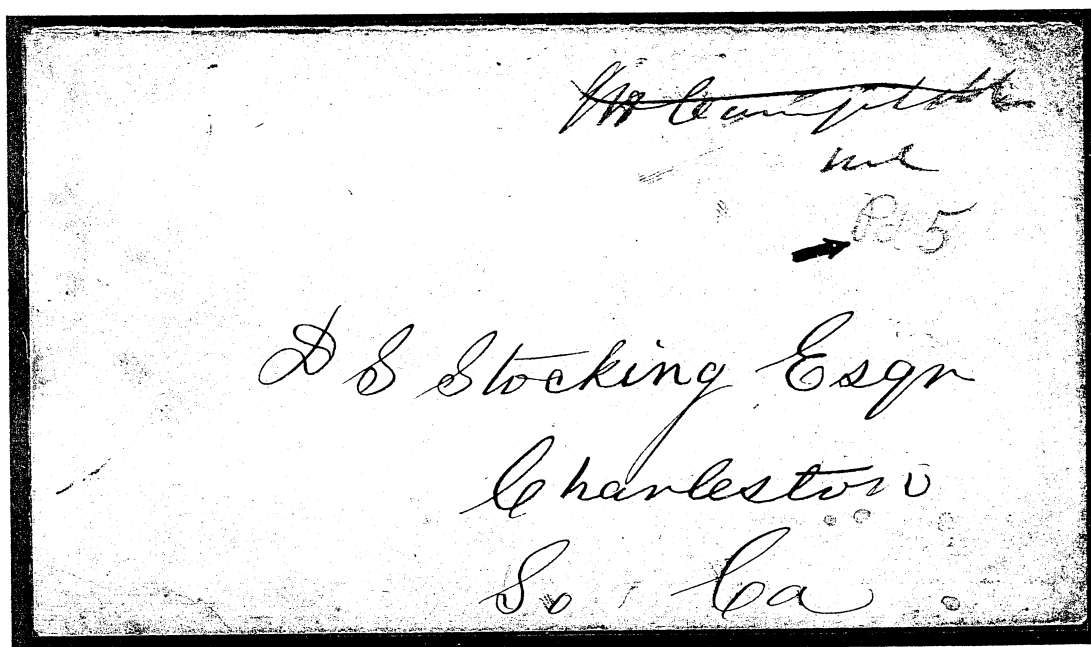 Pd 5
D S Stocking Esqr
Charleston
So Ca